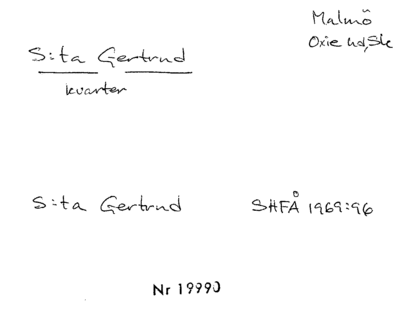 Malmö
Oxie hd, Sk
S:ta Gertrud
kvarter
S:ta Gertrud SHFÅ 1969:96
Nr 19990